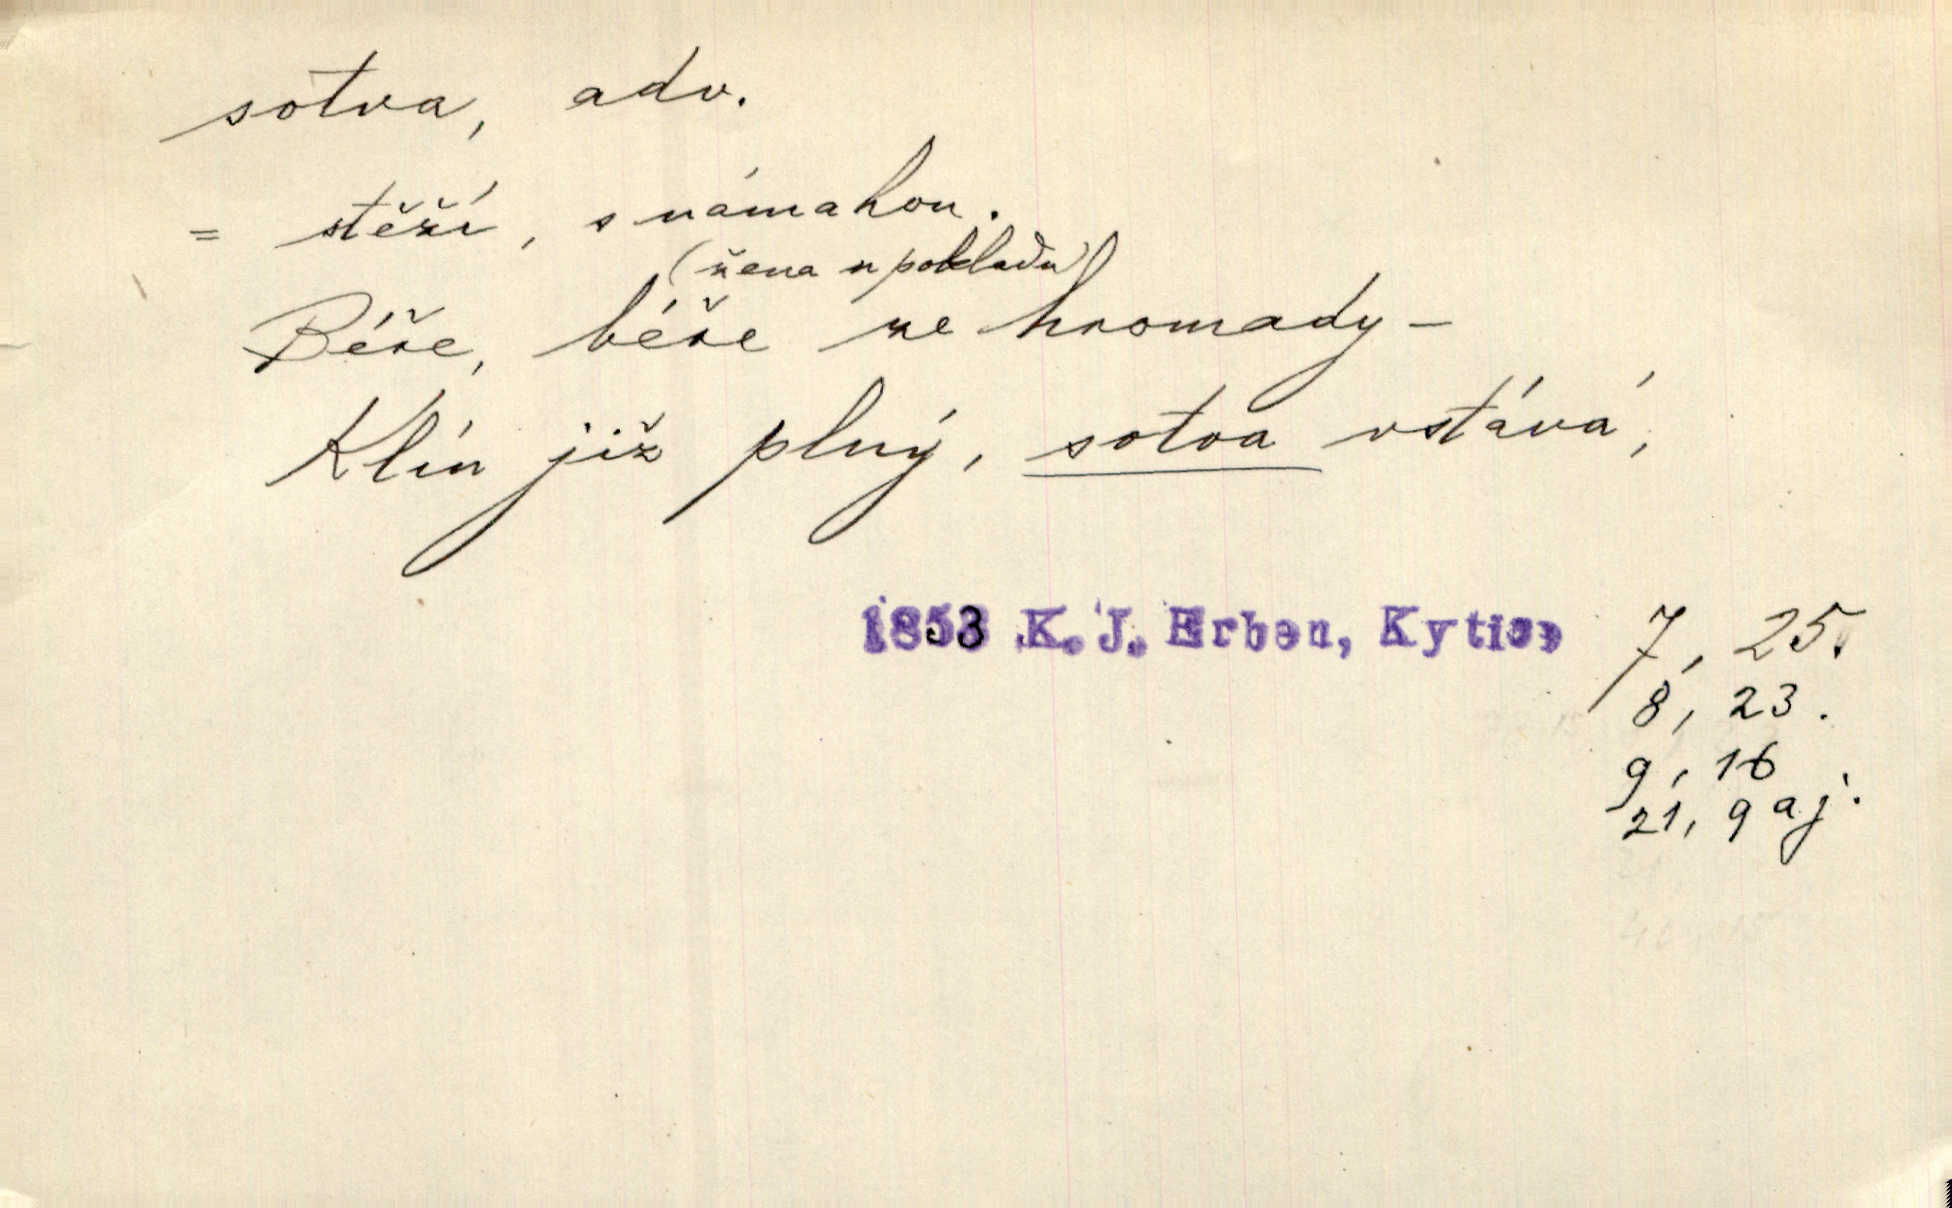 sotva, adv.
= stěží, s námahou.
(žena u pokladu)
Béře, béře ze hromady –
Klín již plný, sotva vstává,
1853 K. J. Erben, Kytice 7, 25.
8, 23.
9, 16
21, 9 aj.